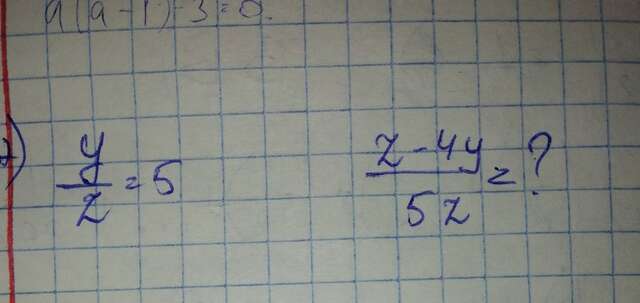 a(a-1)-3=0.
y/z = 5
(z-4y)/5z = ?